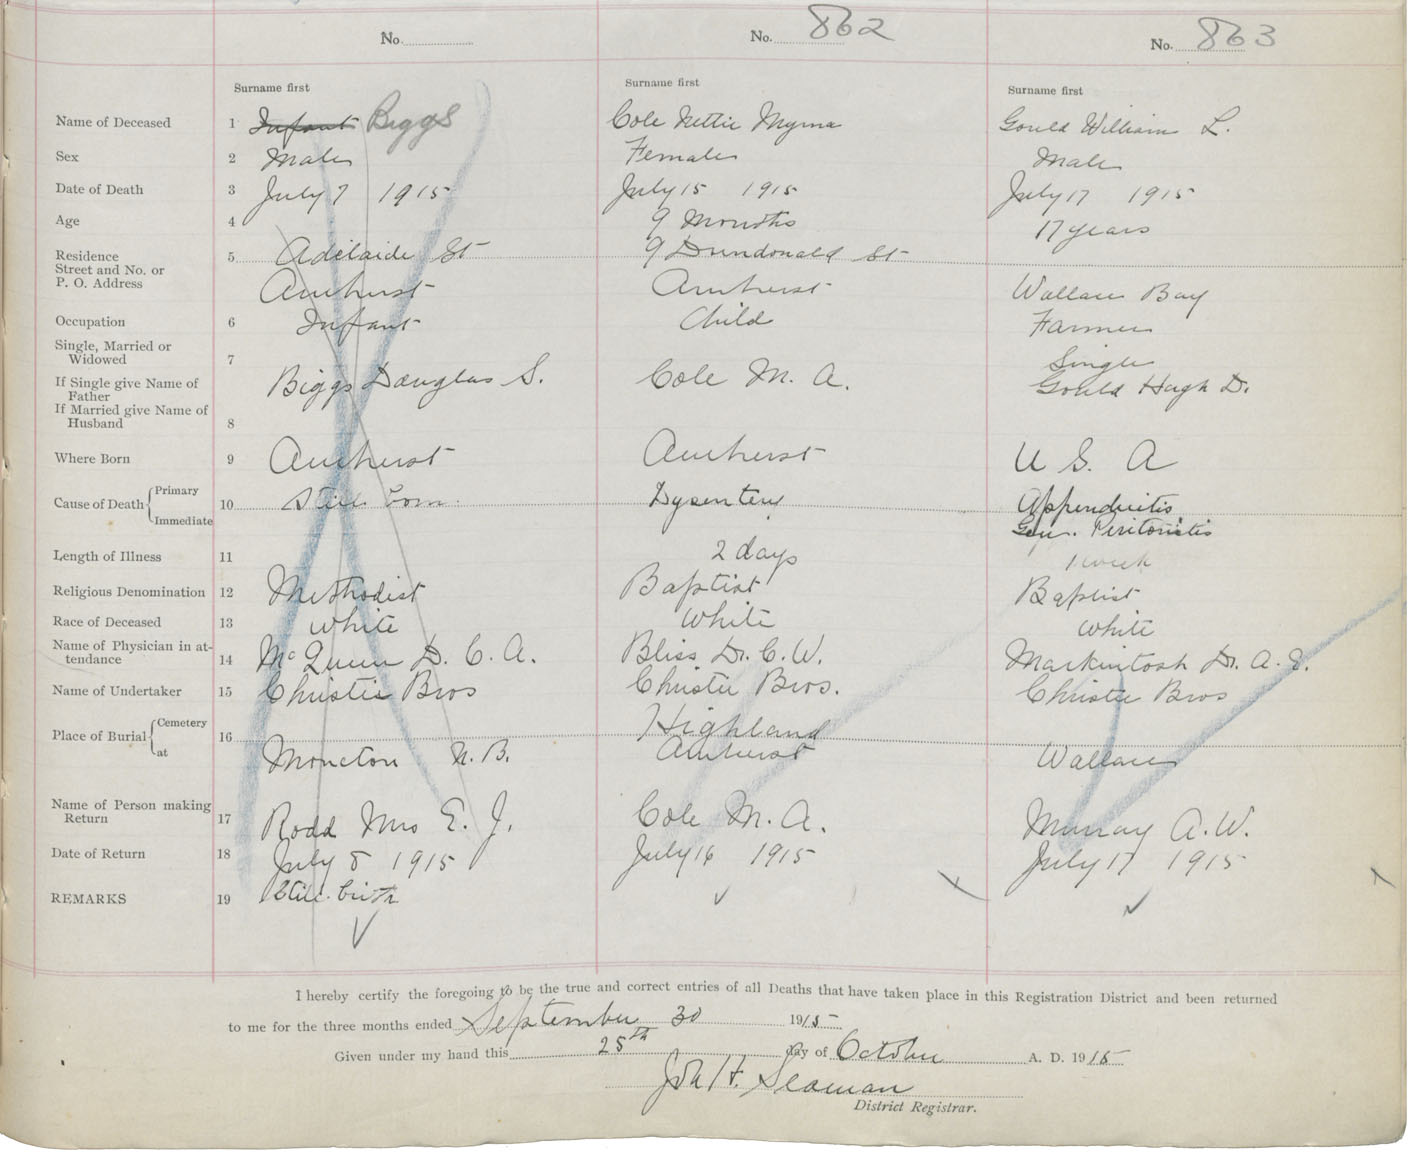 No. No. 862 No. 863
Surname first Surname first Surname first
Name of Deceased 1 Infant Biggs Cole Nettie Myrna Gould William L.
Sex 2 Male Female Male
Date of Death 3 July 7 1915 July 15 1915 July 17 1915
Age 4 9 Months 17 years
Residence 5 Adelaide St 9 Dundonald St
Street and No. or
P. O. Address Amherst Amherst Wallace Bay
Occupation 6 Infant Child Farmer
Single, Married or
Widowed 7 Single
If Single give Name of Biggs Douglas S. Cole M. A. Gould Hugh D.
Father
If Married give Name of
Husband 8
Where Born 9 Amherst Amherst U S. A
Cause of Death Primary 10 Still born Dysentery Appendicitis
Immediate Gen. Peritonitis
Length of Illness 11 2 days 1 week
Religious Denomination 12 Methodist Baptist Baptist
Race of Deceased 13 White White White
Name of Physician in at-
tendance 14 McQueen D. C. A. Bliss Dr. C. W. Mackintosh Dr. A. E.
Name of Undertaker 15 Christie Bros Christie Bros. Christie Bros
Place of Burial Cemetery 16 Highland
at Moncton N. B. Amherst Wallace
Name of Person making
Return 17 Rodd Mrs E. J. Cole M. A. Murray A. W.
Date of Return 18 July 8 1915 July 16 1915 July 17 1915
REMARKS 19 Still birth
I hereby certify the foregoing to be the true and correct entries of all Deaths that have taken place in this Registration District and been returned
to me for the three months ended September 30 1915
Given under my hand this 25th day of October A. D. 1915
Jno H. Seaman
District Registrar.